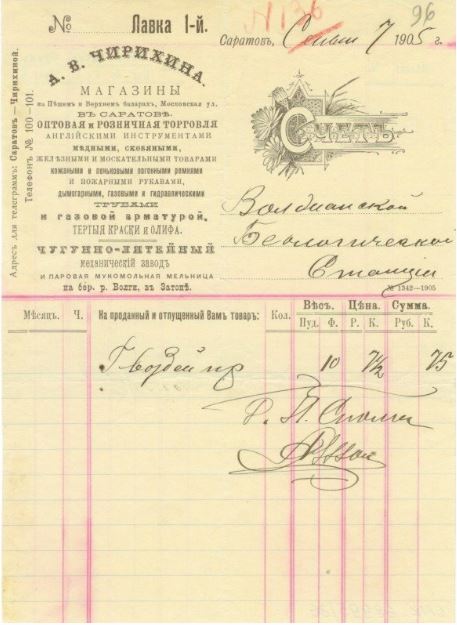 №
Лавка 1-й.
N 136
96
Саратовъ, 7 1905 г.
А. В. ЧИРИХИНА.
МАГАЗИНЫ
въ Пѣшемъ и Верхнемъ базарахъ, Московская ул.
ВЪ САРАТОВѢ.
ОПТОВАЯ и РОЗНИЧНАЯ ТОРГОВЛЯ
АНГЛІЙСКИМИ ИНСТРУМЕНТАМИ
МѢДНЫМИ, СКОБЯНЫМИ,
ЖЕЛѢЗНЫМИ И МОСКАТЕЛЬНЫМИ ТОВАРАМИ
кожаными и пеньковыми погонными ремнями
И ПОЖАРНЫМИ РУКАВАМИ,
дымогарными, газовыми и гидравлическими
ТРУБАМИ
и газовой арматурой,
ТЕРТЫЯ КРАСКИ и ОЛИФА.
ЧУГУННО-ЛИТЕЙНЫЙ
механическій заводъ
И ПАРОВАЯ МУКОМОЛЬНАЯ МЕЛЬНИЦА
на бер. р. Волги, въ Затонѣ.
Адресъ для телеграммъ: Саратовъ—Чирихиной.
Телефонъ № 100—101.
Счетъ
Волжианской
Біологической
Станціи
№ 1342—1905
Мѣсяцъ. Ч. На проданный и отпущенный Вамъ товаръ: Кол. Вѣсъ. Цѣна. Сумма.
Пуд. Ф. Р. К. Руб. К.
Гвоздей пр 10 7½ 75